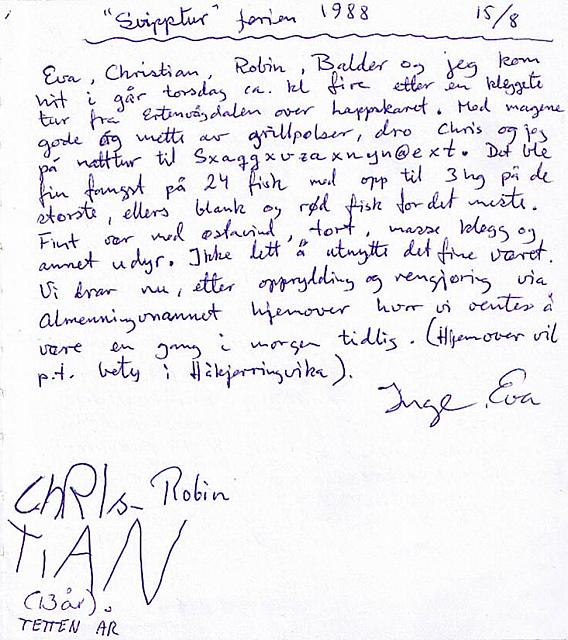 "Svipptur" ferien 1988 15/8
Eva, Christian, Robin, Balder og jeg kom
hit i går torsdag ca. kl fire etter en kleggete
tur fra Estenvågdalen over happskaret. Med magene
gode og mette av grillpølser, dro Chris og jeg
på nattur til Sxaqgxvzaxnyn@ext. Det ble
fin fangst på 24 fisk med opp til 3 kg på de
største, ellers blank og rød fisk for det meste.
Fint vær med østavind, tørt, masse klegg og
annet udyr. Ikke lett å utnytte det fine været.
Vi drar nu, etter opprydding og rengjøring via
Almenningsvannet hjemover hvor vi ventes å
være en gang i morgen tidlig. (Hjemover vil
p.t. bety i Håkjerringvika).
Inge, Eva
CHRIS- Robin
TIAN
(13 år).
TETTEN ÅR